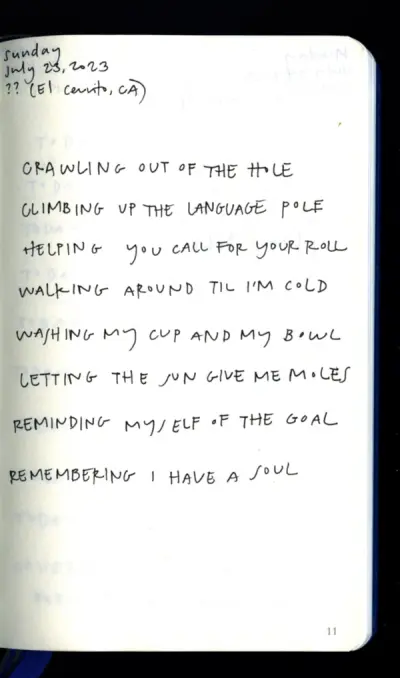 Sunday
July 23, 2023
?? (El Cerrito, CA)
CRAWLING OUT OF THE HOLE
CLIMBING UP THE LANGUAGE POLE
HELPING YOU CALL FOR YOUR ROLL
WALKING AROUND TIL I'M COLD
WASHING MY CUP AND MY BOWL
LETTING THE SUN GIVE ME MOLES
REMINDING MYSELF OF THE GOAL
REMEMBERING I HAVE A SOUL
11